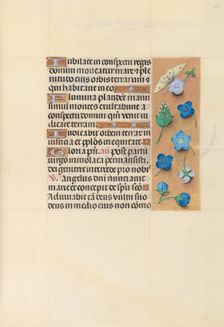 Jubilate in conspectu regis
domini moveatur mare et ple
nitudo eius orbis terrarum et
qui habitant in eo
Flumina plaudent manu
simul montes exultabunt a
conspectu domini qm̄ venit iu
dicare terram
Iudicabit orbem terrar in
iusticia et pplos in equitate
Gloria p̄ri. an̄. Post partū
virgo inviolata permansisti.
dei genitrix intercede pro nobis
V̄. Angelus dn̄i nunciavit
marie et concepit de spū sco
Adiuvabit eā deus vultu suo
deus in medio eius non cōmo